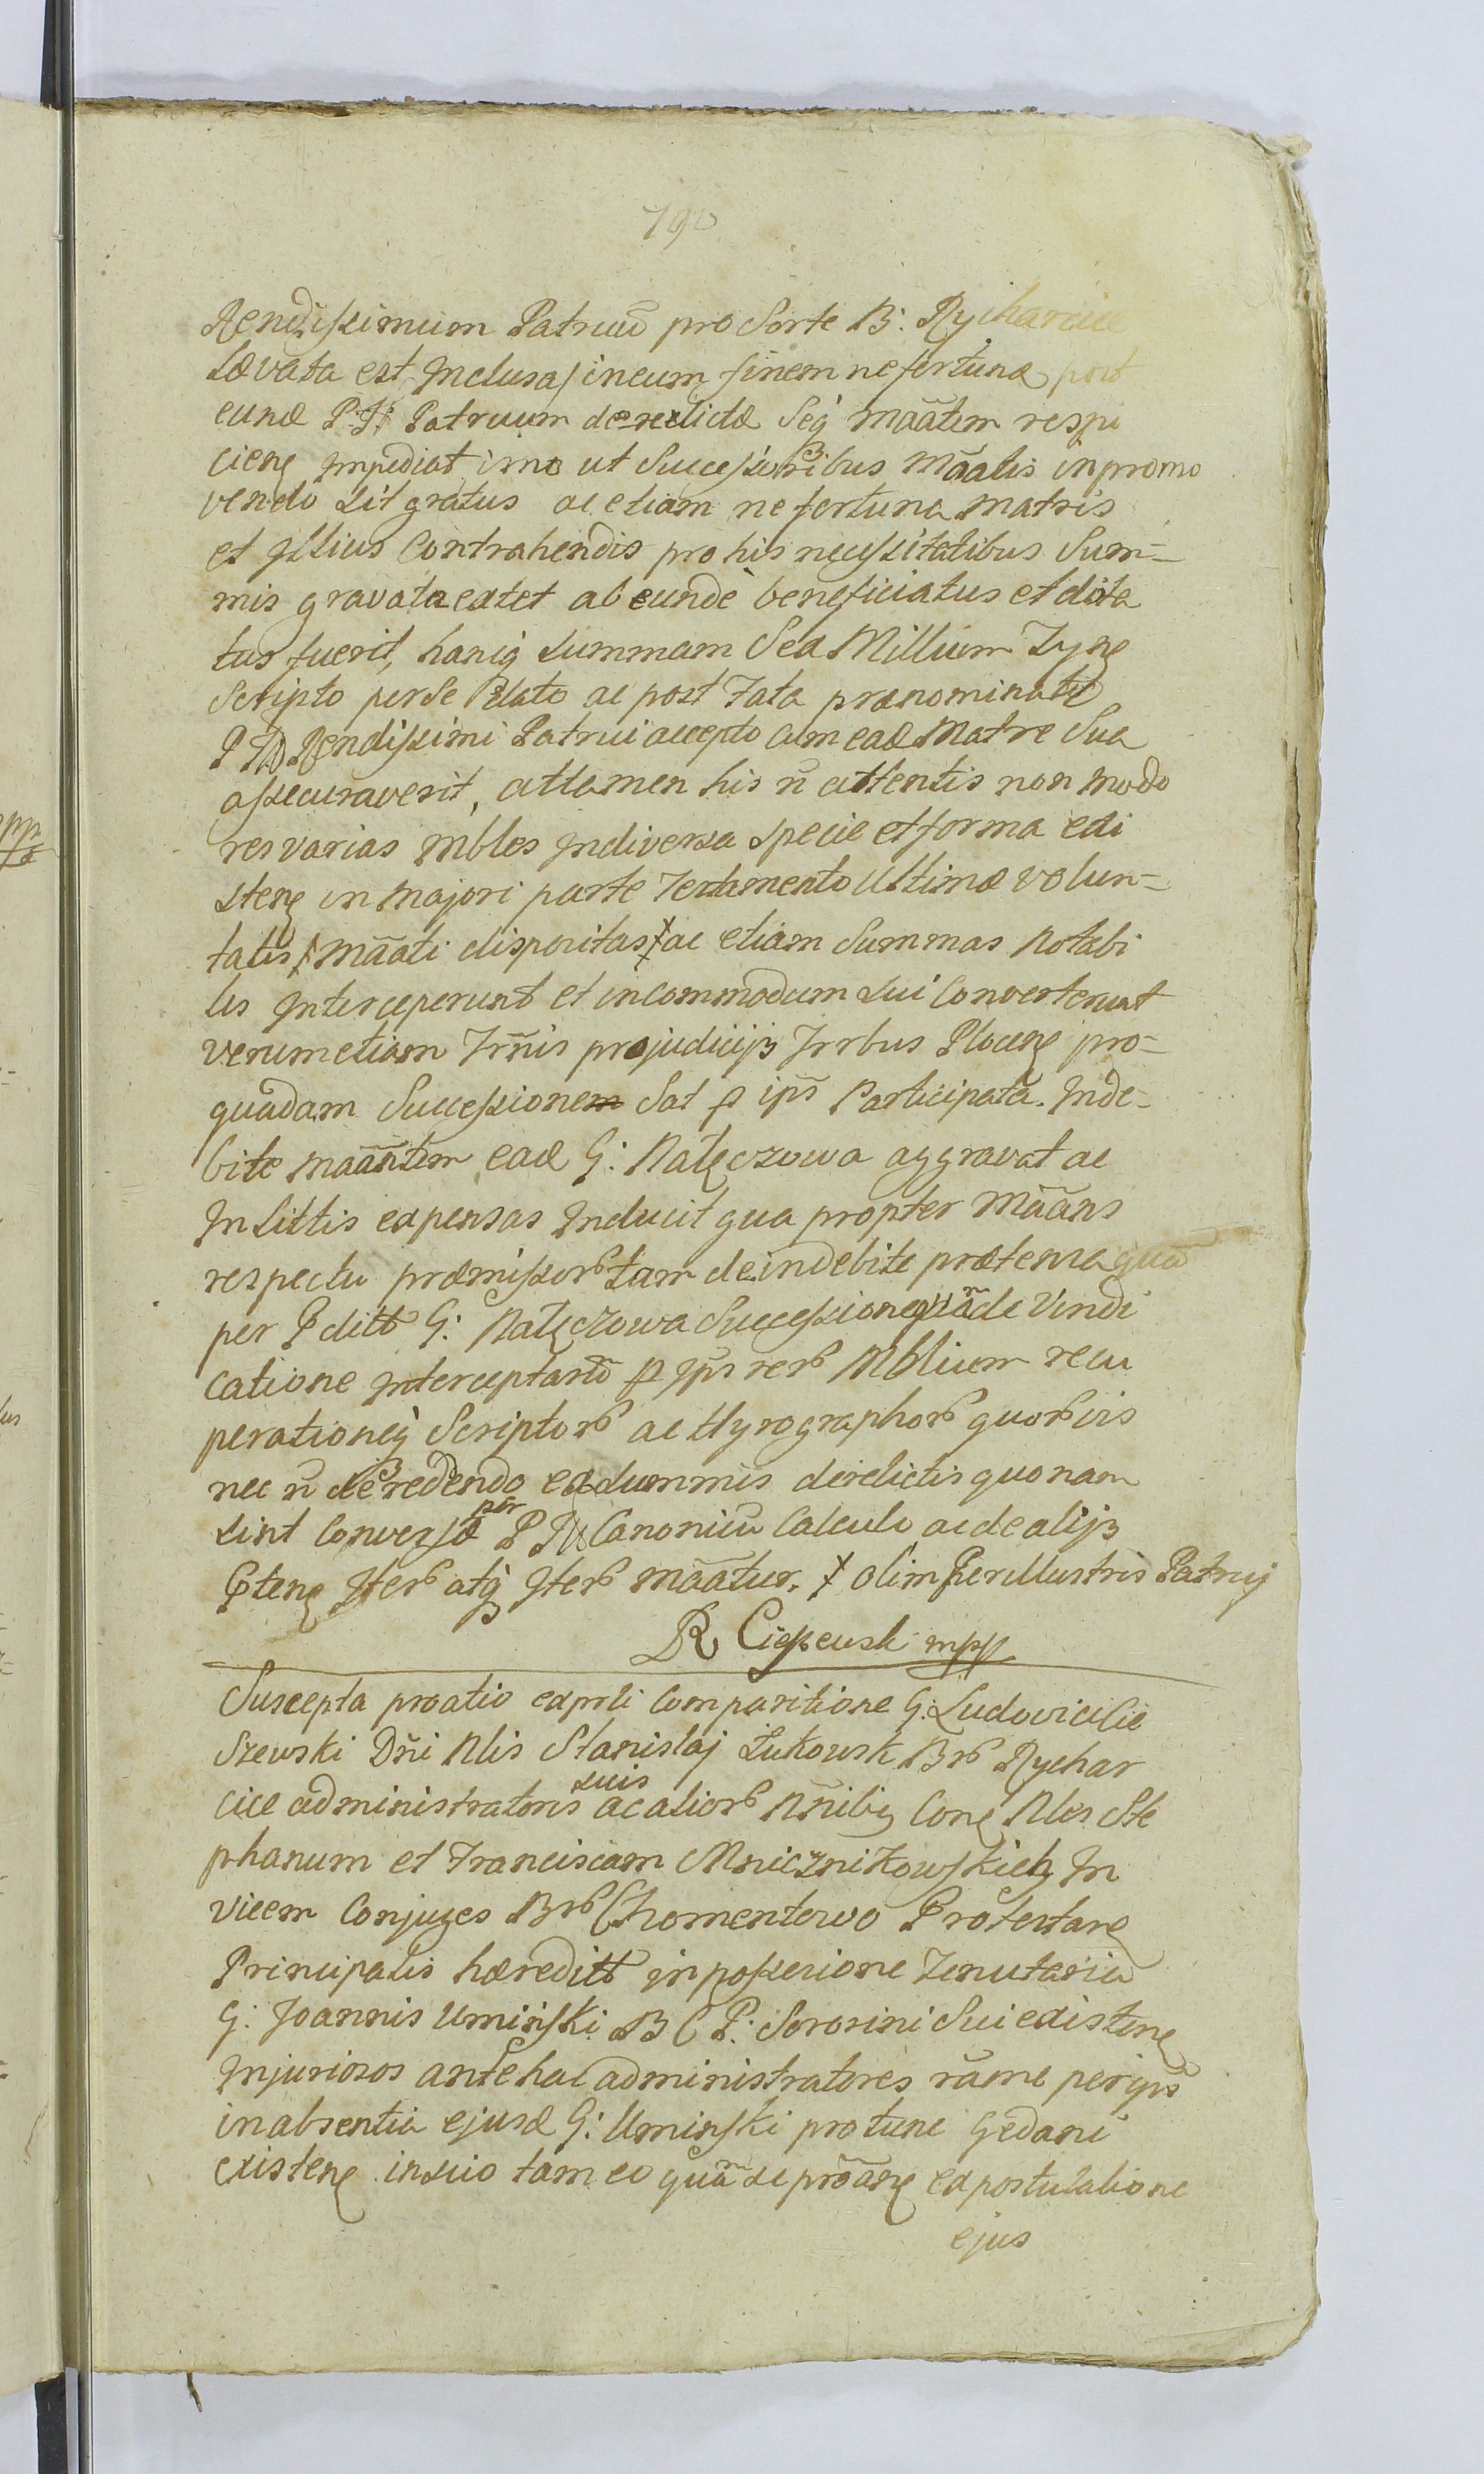 790
Rendissimum Patruũ pro Sorte B: Rycharcice
Levata est Inclusa / in eum finem ne fortunæ post
eund P. Ill Patruum derelictæ Seq̨ mãatem respi
cieñ Impediat imo ut Successoribus Mãalis in promo
vendo sit gratus ac etiam ne fortuna matris
et Illius Contrahendis pro his necessitatibus Sum=
mis gravata extet ab eundè beneficiatus et dita
tus fuerit, hancq̨ Summam Sex Millium
Scripto per Se dato ac post Fata prænominati
Rendissimi Patrui accepto cum ead Matre Sua
assecuraverit, attamen his ñ attentis non modo
res varias mbles In diversa specie et forma exi
steñ in majori parte Testamento Ultimæ volun=
tatis mãati disposita ac etiam Summas Notabi
les Interceperunt et in commodum Sui Converterunt
verum etiam prejudicijs pro=
quadam Successionem ipš Participata. Inde=
bite mãantem ead G: Nałęczowa aggravat ac
In Littis expensas Inducit qua propter Mãans
respectu præmissor tam de indebite prætensa quã
per G: Nałęczowa Successione quã de Vindi
catione Interceptarũ ipš rer Mblium recu
perationeq̨ Scriptor ac Hyrographor quorvis
nec ñ de reddendo ex Summis derelictis quonam
sint Conversæ per Canonicũ Calculo ac de alijs
Iter atq̨ Iter mãatur. ҂ olim Perillustris Patruj
R Cieszewski mpp
Suscepta pro atio ex proli Comparitione G: Ludovici Cie
szewski Dñi Nlis Stanislaj Łukowsk Br Rychar
cice administratoris suis ac alior Nñibq̨ Conę Nles Ste
phanum et Franciscam Mniczni Kowskich In
vicem Conjuges Br Chomentowo Protestañ
Principalis hæredit in possesione Tenutaria
G: Joannis Uminski B C P: Sororini Sui existeñ
Injuriosos ante hac administratores rãone per ipš
in absentia ejusd G: Uminski pro tunc Gedani
existeñ in suo tam eo quã se prõañ expostulatione
ejus